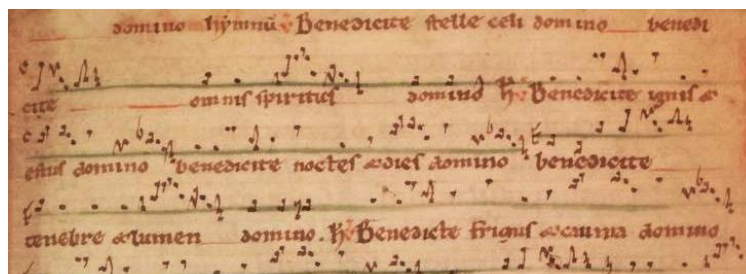 domino hỳmnū ℟ Benedicite stelle celi domino benedi
cite omnis spiritus domino ℟ Benedicite ignis &
estus domino benedicite noctes & dies domino benedicite
tenebre & lumen domino. ℟ Benedicte frigus & cauma domino